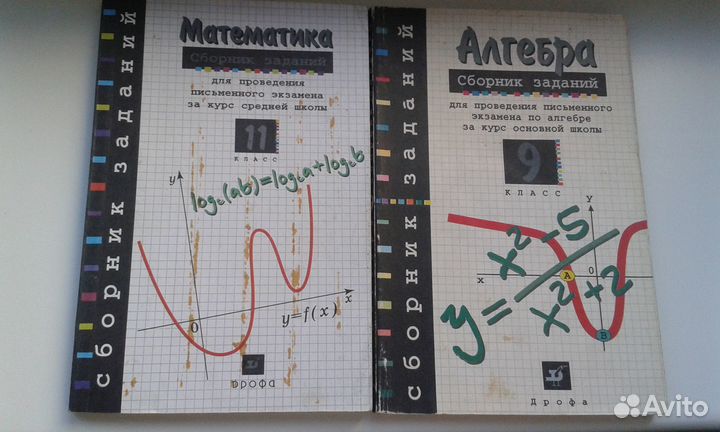 сборник заданий
Математика
Сборник заданий
для проведения
письменного экзамена
за курс средней школы
11
КЛАСС
log_c(ab)=log_c a+log_c b
y
0
x
y=f(x)
Дрофа
сборник заданий
Алгебра
Сборник заданий
для проведения письменного
экзамена по алгебре
за курс основной школы
9
КЛАСС
y
x
A
0
B
y = x² - 5 / x² + 2
Дрофа
Avito